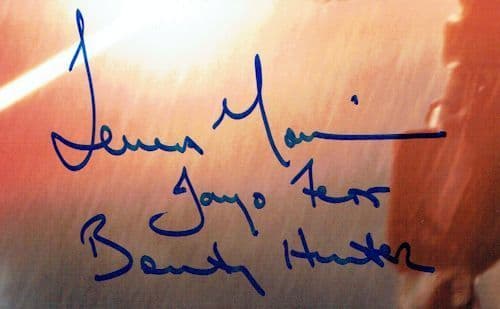 Temuera Morrison
Jango Fett
Bounty Hunter